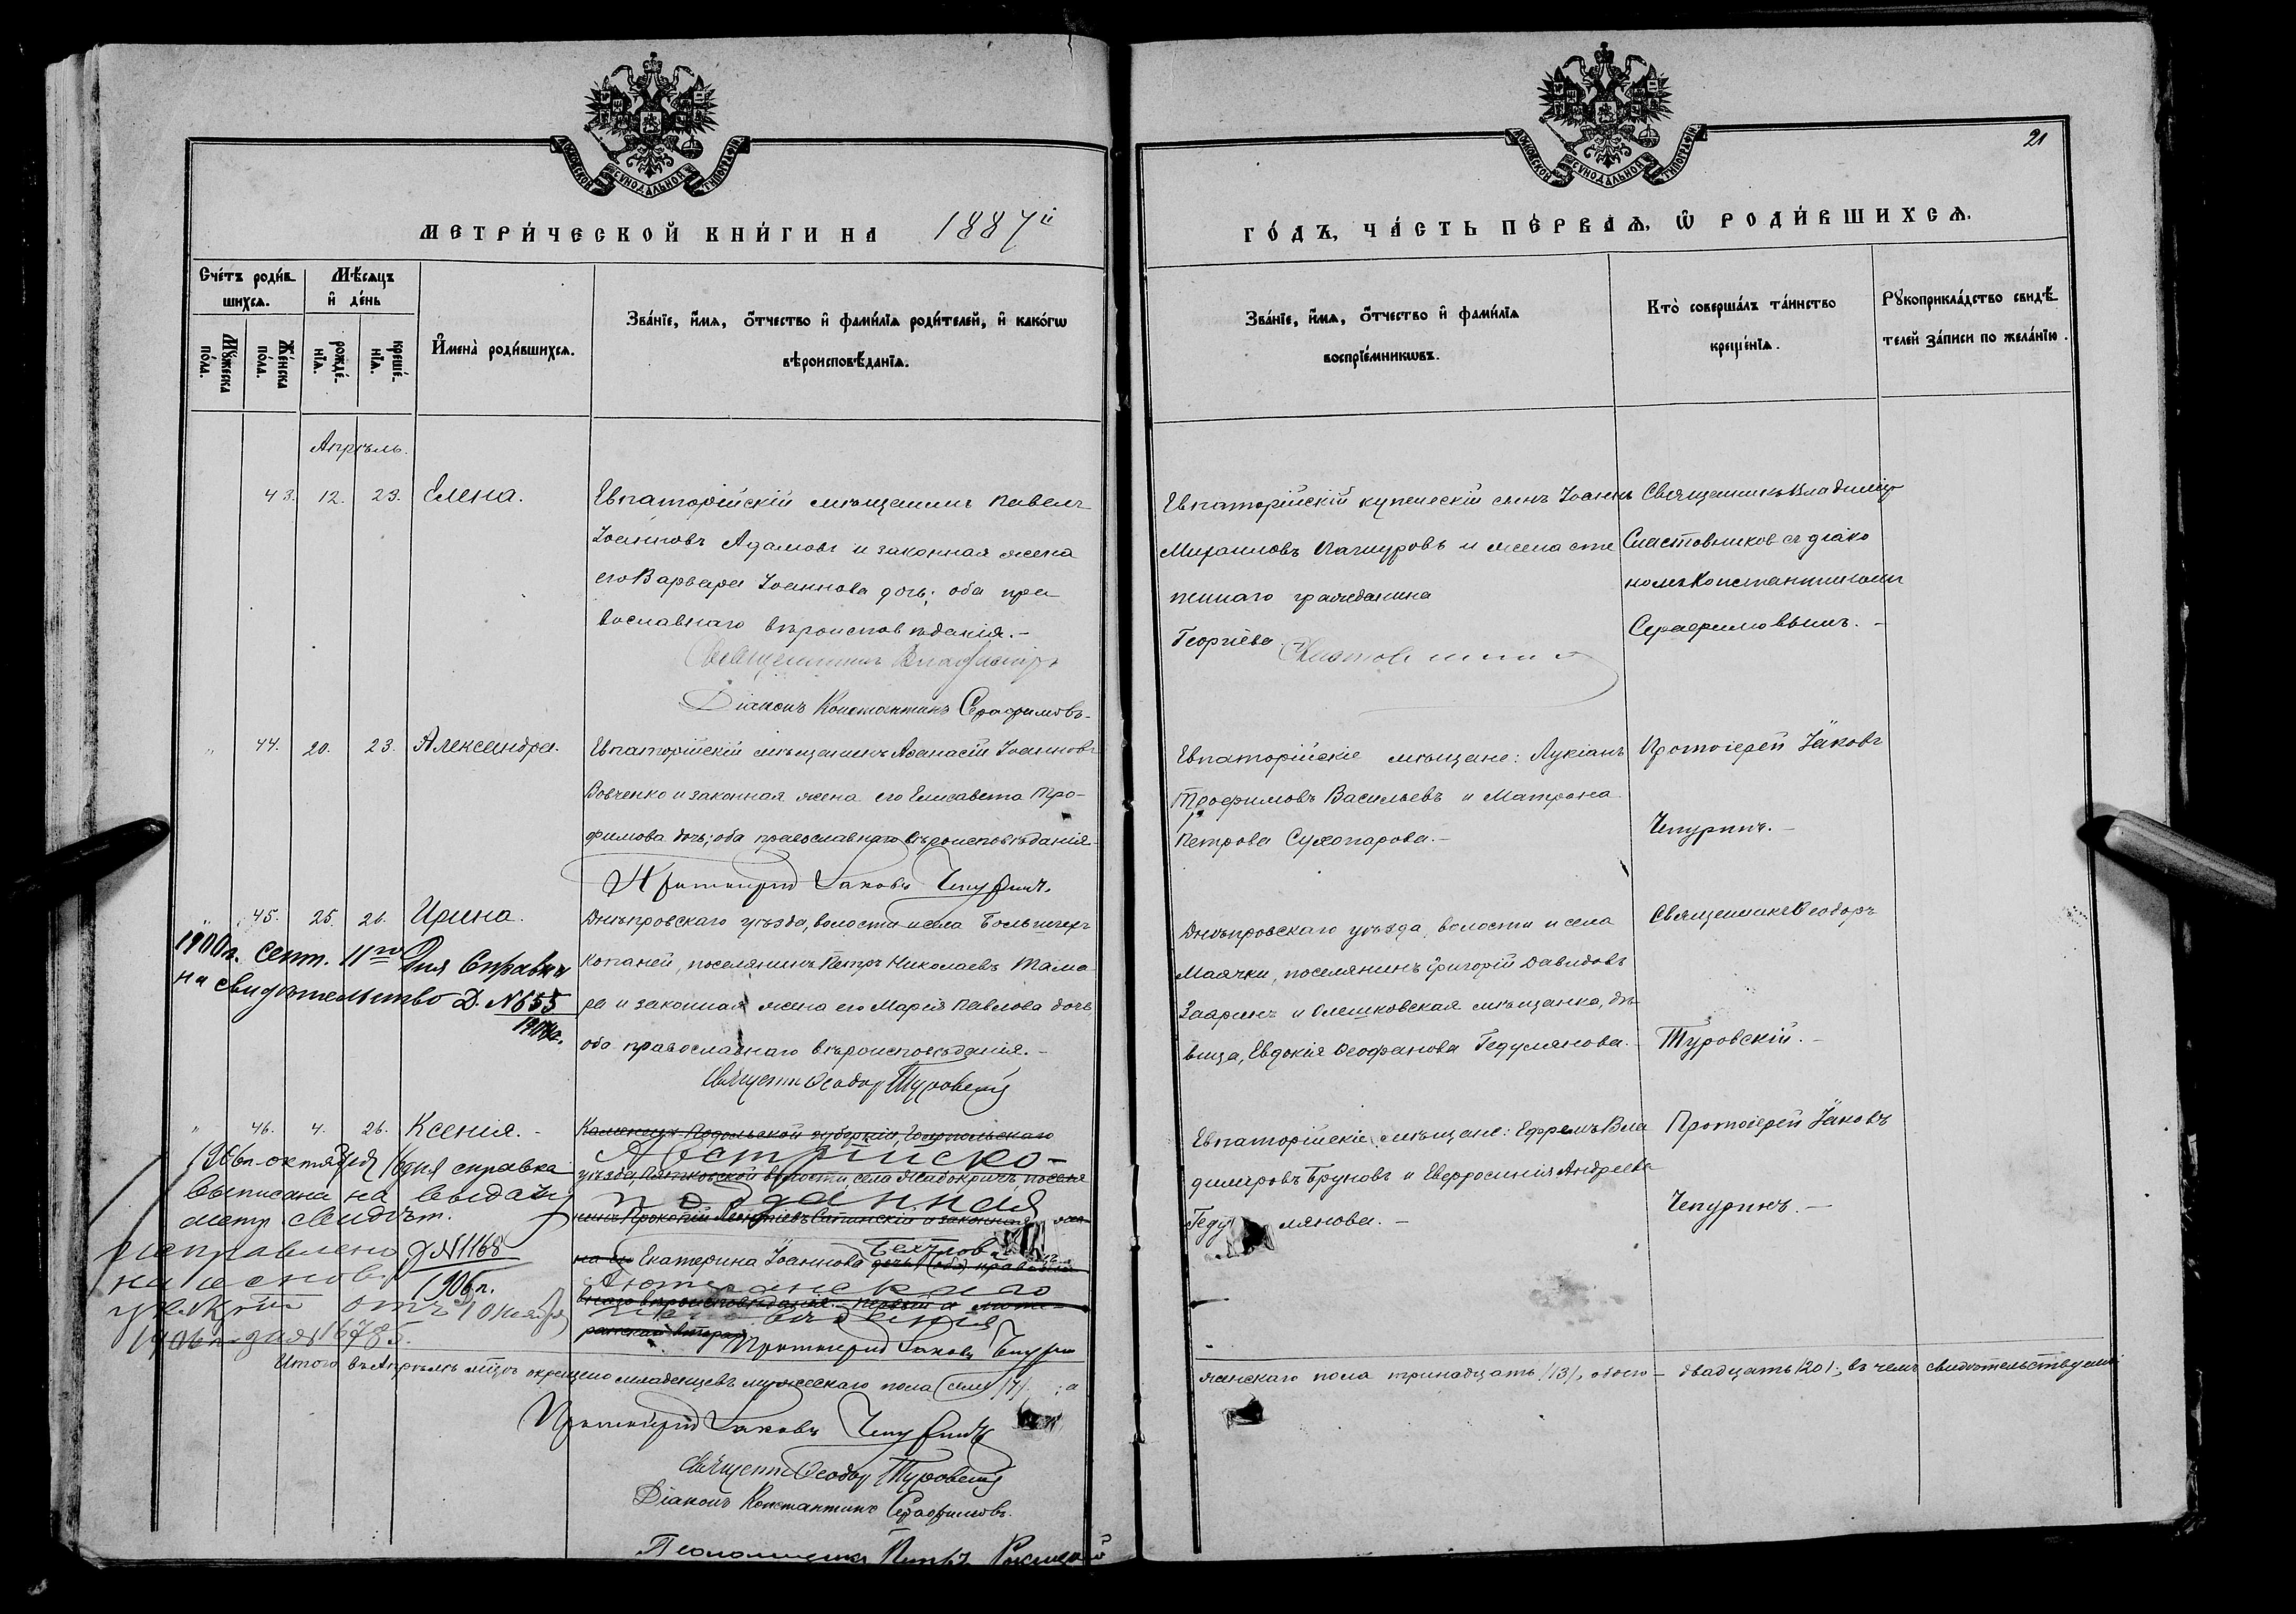 МОСКОВСКОЙ СУНОДАЛЬНОЙ ТИПОГРАФІИ
МЕТРИ́ЧЕСКОЙ КНИ́ГИ НА 1887й
Сче́тъ роди́в
шихсѧ.
Мѣ́сѧцъ
и҆ де́нь
Мꙋ́жеска
по́ла.
Же́нска
по́ла.
рожде́-
нїѧ.
креще́-
нїѧ.
И҆мена̀ роди́вшихсѧ.
Зва́нїе, и҆́мѧ, ѻ҆́тчество и҆ фами́лїѧ роди́телей, и҆ како́гѡ
вѣроисповѣ́данїѧ.
Апрѣль.
43. 12. 23. Елена.
Евпаторійскій мѣщанинъ Павелъ
Іоанновъ Адамовъ и законная жена
его Варвара Іоаннова дочь; оба пра
вославнаго вѣроисповѣданія.-
Священникъ Владиміръ
Діаконъ Константинъ Серафимовъ-
" 44. 20. 23. Александра.
Евпаторійскій мѣщанинъ Аѳанасій Іоанновъ
Вовченко и законная жена его Елисавета Тро-
фимова дочь; оба православнаго вѣроисповѣданія-
Протоіерей Іаковъ Чепуринъ.
" 45. 25. 26. Ирина.
Днѣпровскаго уѣзда, волости и села Большихъ
Копаней, поселянинъ Петръ Николаевъ Тама
ра и законная жена его Марія Павлова дочь
оба православнаго вѣроисповѣданія.-
Священн Ѳеодор Туровскій
1900г. сент. 11го Дня Справка
на свидѣтельство Д. №655
" 46. 4. 26. Ксенія.-
Каменецъ-Подольской губерніи,
Австрійско-
уѣзда, волости, села Жабокричъ, поселя
подданная
нинъ Прокопій и законная же
на его Екатерина Іоаннова дочь (оба) право
Лютеранскаго
внаго вѣроисповѣданія.- первый и люте-
ранскаго вторая
Протоіерей Іаковъ Чепурин
1906г. октября 16дня справка
выписана на выдачу
метр. свидѣт.
исправлено Д №1168
на основ. 1906г.
указа отъ 10 ноября
Итого въ Апрѣлѣ мѣсяцѣ окрещено младенцевъ мужескаго пола семь /7/ ; а
Протоіерей Іаковъ Чепуринъ
Священн Ѳеодор Туровскій
Діаконъ Константинъ Серафимовъ.
Псаломщикъ
МОСКОВСКОЙ СУНОДАЛЬНОЙ ТИПОГРАФІИ
21
ГО́ДЪ, ЧА́СТЬ ПЕ́РВАѦ, Ѡ҆ РОДИ́ВШИХСѦ.
Зва́нїе, и҆́мѧ, ѻ҆́тчество и҆ фами́лїѧ
воспрїе́мникѡвъ.
Кто̀ соверша́лъ та́инство
креще́нїѧ.
Рꙋкоприкла́дство свидѣ́
телей за́писи по жела́нїю.
Евпаторійскій купеческій сынъ Іоаннъ
Михаиловъ Пачуровъ и жена сте
пеннаго гражданина
Георгіева
Священникъ Владиміръ
Сластовниковъ съ діако
номъ Константиномъ
Серафимовымъ.-
Евпаторійскіе мѣщане: Лукіанъ
Трофимовъ Васильевъ и Матрона
Петрова Сухопарова.-
Протоіерей Іаковъ
Чепуринъ.-
Днѣпровскаго уѣзда, волости и села
Маячки, поселянинъ Григорій Давидовъ
Гааринъ и Олешковская мѣщанка, дѣ
вица, Евдокія Ѳеофанова Гедулянова.-
Священникъ Ѳеодоръ
Туровскій.-
Евпаторійскіе мѣщане: Ефремъ Вла
димировъ Бруновъ и Евфросинія Андреева
Геду лянова.-
Протоіерей Іаковъ
Чепуринъ.-
женскаго пола тринадцать /13/, обоего- двадцать /20/; въ чемъ свидѣтельствуемъ